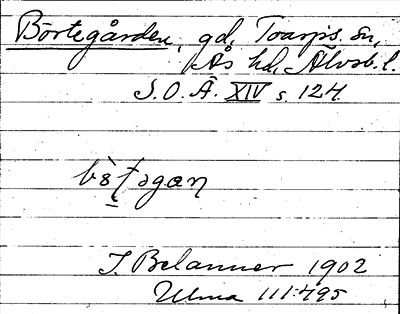 Börtegården, gd, Toarps sn,
Ås hd, Älvsb. l.
S. O. Ä. XIV s. 124.
I. Belanner 1902
Ulma 111:495